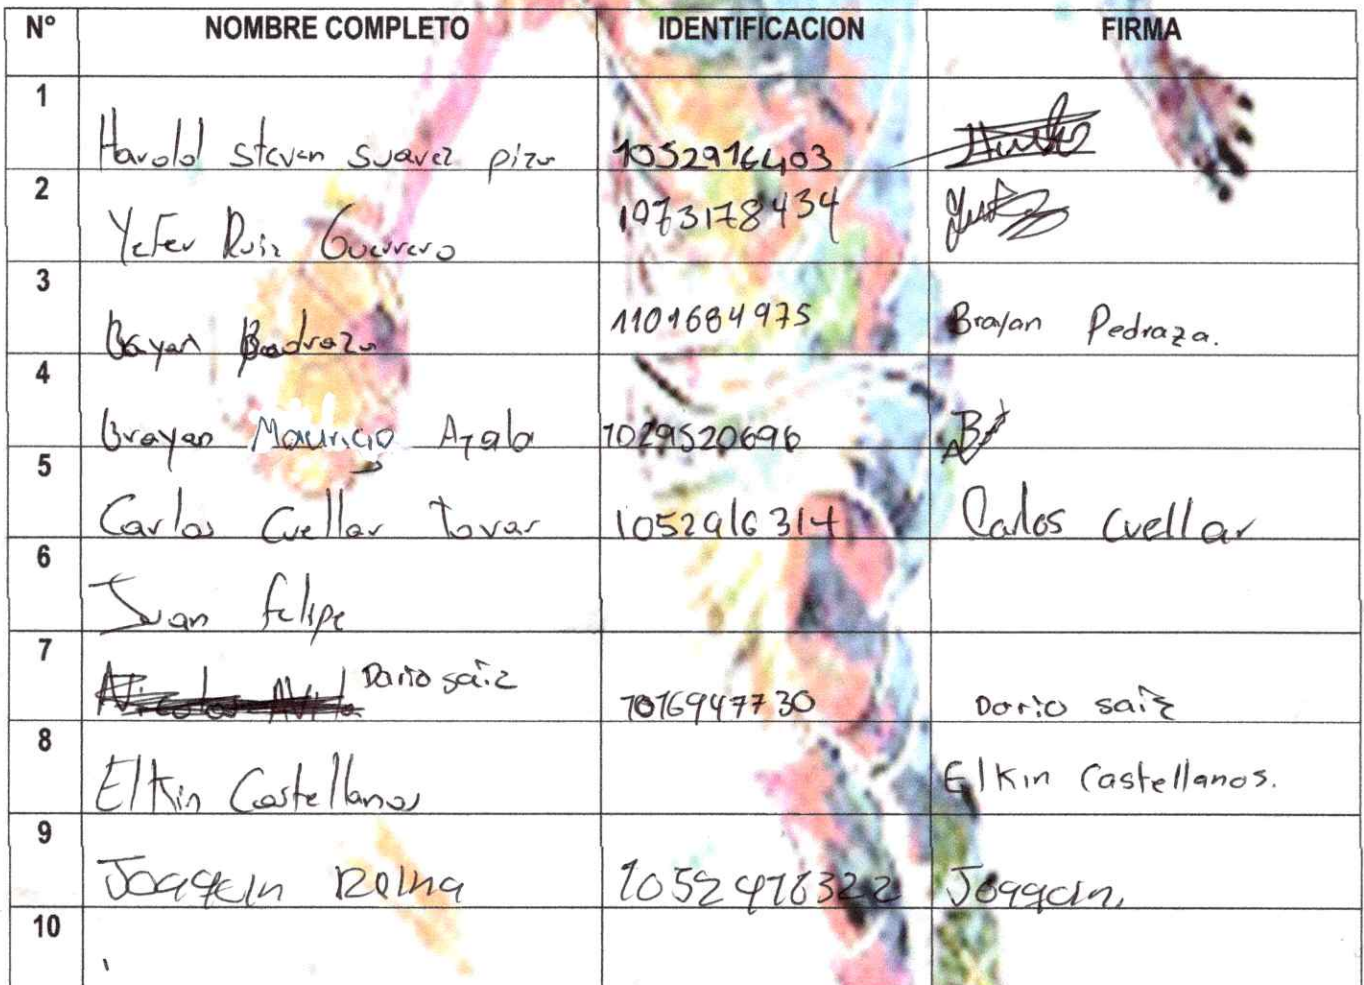 N° NOMBRE COMPLETO IDENTIFICACION FIRMA
1 Harold Steven Suavez pizo 1052916403
2 Yefer Ruiz Guerrero 1073178434
3 Brayan Pedraza 1101684975 Brayan Pedraza.
4 Brayan Mauricio Ayala 1029520696
5 Carlos Cuellar Tovar 1052916314 Carlos Cuellar
6 Juan Felipe
7 Dario saiz 1016947730 Dario saiz
8 Elkin Castellanos Elkin Castellanos.
9 Joaquin Reina Joaquin.
10